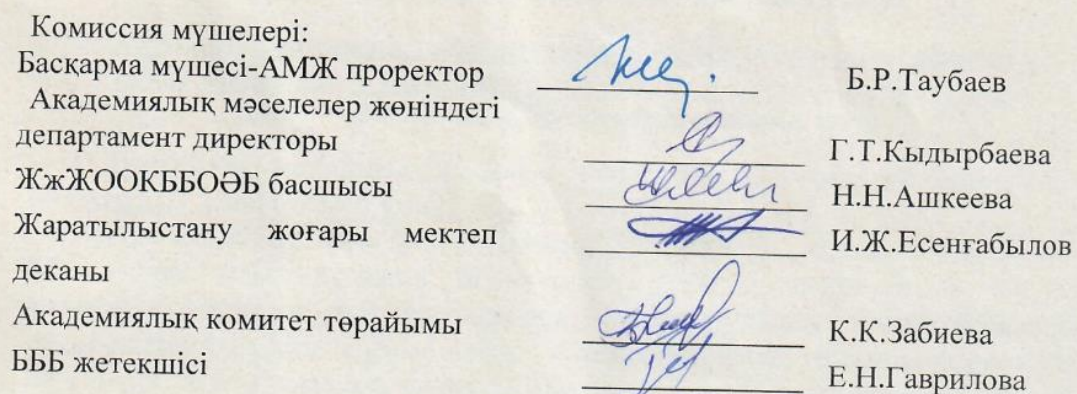 Комиссия мүшелері:
Басқарма мүшесі-АМЖ проректор Б.Р.Таубаев
Академиялық мәселелер жөніндегі
департамент директоры Г.Т.Кыдырбаева
ЖжЖООКББОӘБ басшысы Н.Н.Ашкеева
Жаратылыстану жоғары мектеп И.Ж.Есенғабылов
деканы
Академиялық комитет төрайымы К.К.Забиева
БББ жетекшісі Е.Н.Гаврилова